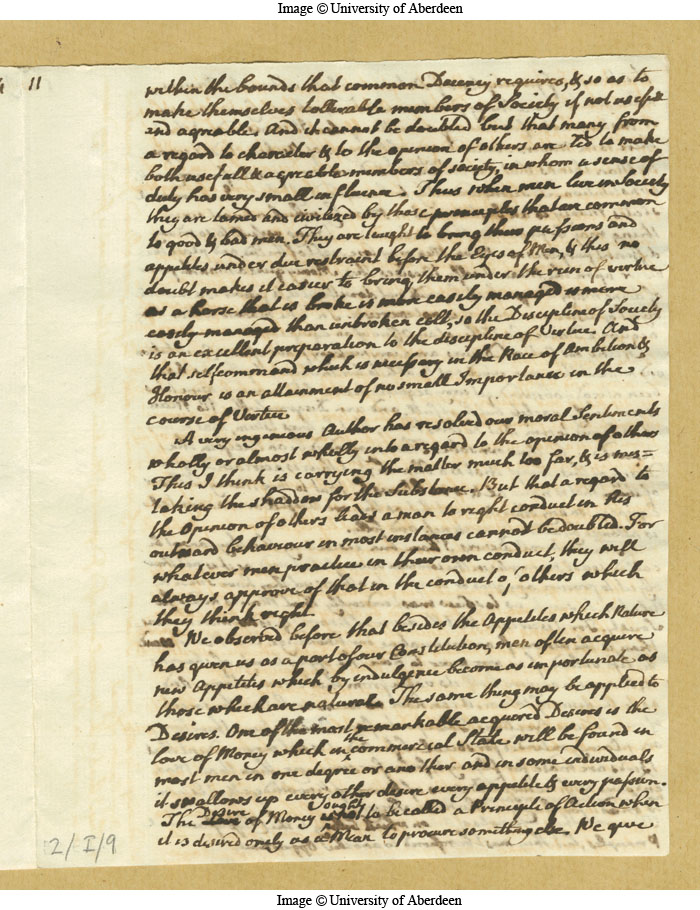 Image © University of Aberdeen
11
within the bounds that common Decency requires, & so as to
make themselves tollerable members of Society if not usefull
and agreable. And it cannot be doubted but that many from
a regard to character & to the opinion of others are led to make
both usefull & agreable members of society, in whom a sense of
duty has very small influence. Thus when men live in Society
they are tamed and civilized by those principles that are common
to good & bad men. They are taught to bring their passions and
appetites under due restraint before the Eyes of Men, & this no
doubt makes it easier to bring them under the rein of virtue
as a horse that is broke is more easily managed is more
easily managed than unbroken colt, so the Discipline of Society
is an excellent preparation to the discipline of Virtue. And
that self command which is necessary in the Race of Ambition &
Honour is an attainment of no small Importance in the
course of Virtue
A very ingenious Author has resolved our moral Sentiments
wholly or almost wholly into a regard to the opinion of others
This I think is carrying the matter much too far, & is mis=
taking the shaddow for the Substance. But that a regard to
the Opinion of others leads a man to right conduct in his
outward behaviour in most instances cannot be doubted. For
whatever men practice in their own conduct, they will
always approve of that in the conduct of others which
they think right
We observed before that besides the Appetites which Nature
has given us as a part of our Constitution, men often acquire
new Appetites which by indulgence become as importunate as
those which are natural. The same thing may be applied to
Desires. One of the most remarkable acquired Desires is the
love of Money which in the commercial State will be found in
most men in one degree or another and in some individuals
it swallows up every other desire every appetite & every passion.
The Desire of Money ought not to be called a Principle of Action when
it is desired onely as a Mean to procure something else. We give
2/I/9
Image © University of Aberdeen